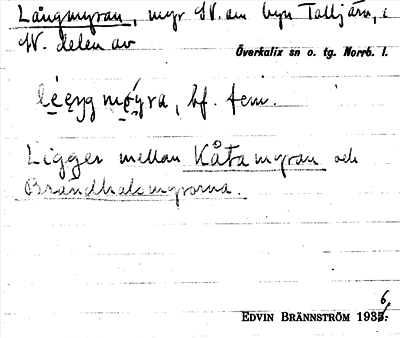 Långmyran, myr N. om byn Talljärv, i
N. delen av
Överkalix sn o. tg. Norrb. l.
myra, bf. fem.
Ligger mellan Kåtamyran och
Brändhalsmyrorna.
EDVIN BRÄNNSTRÖM 1936.